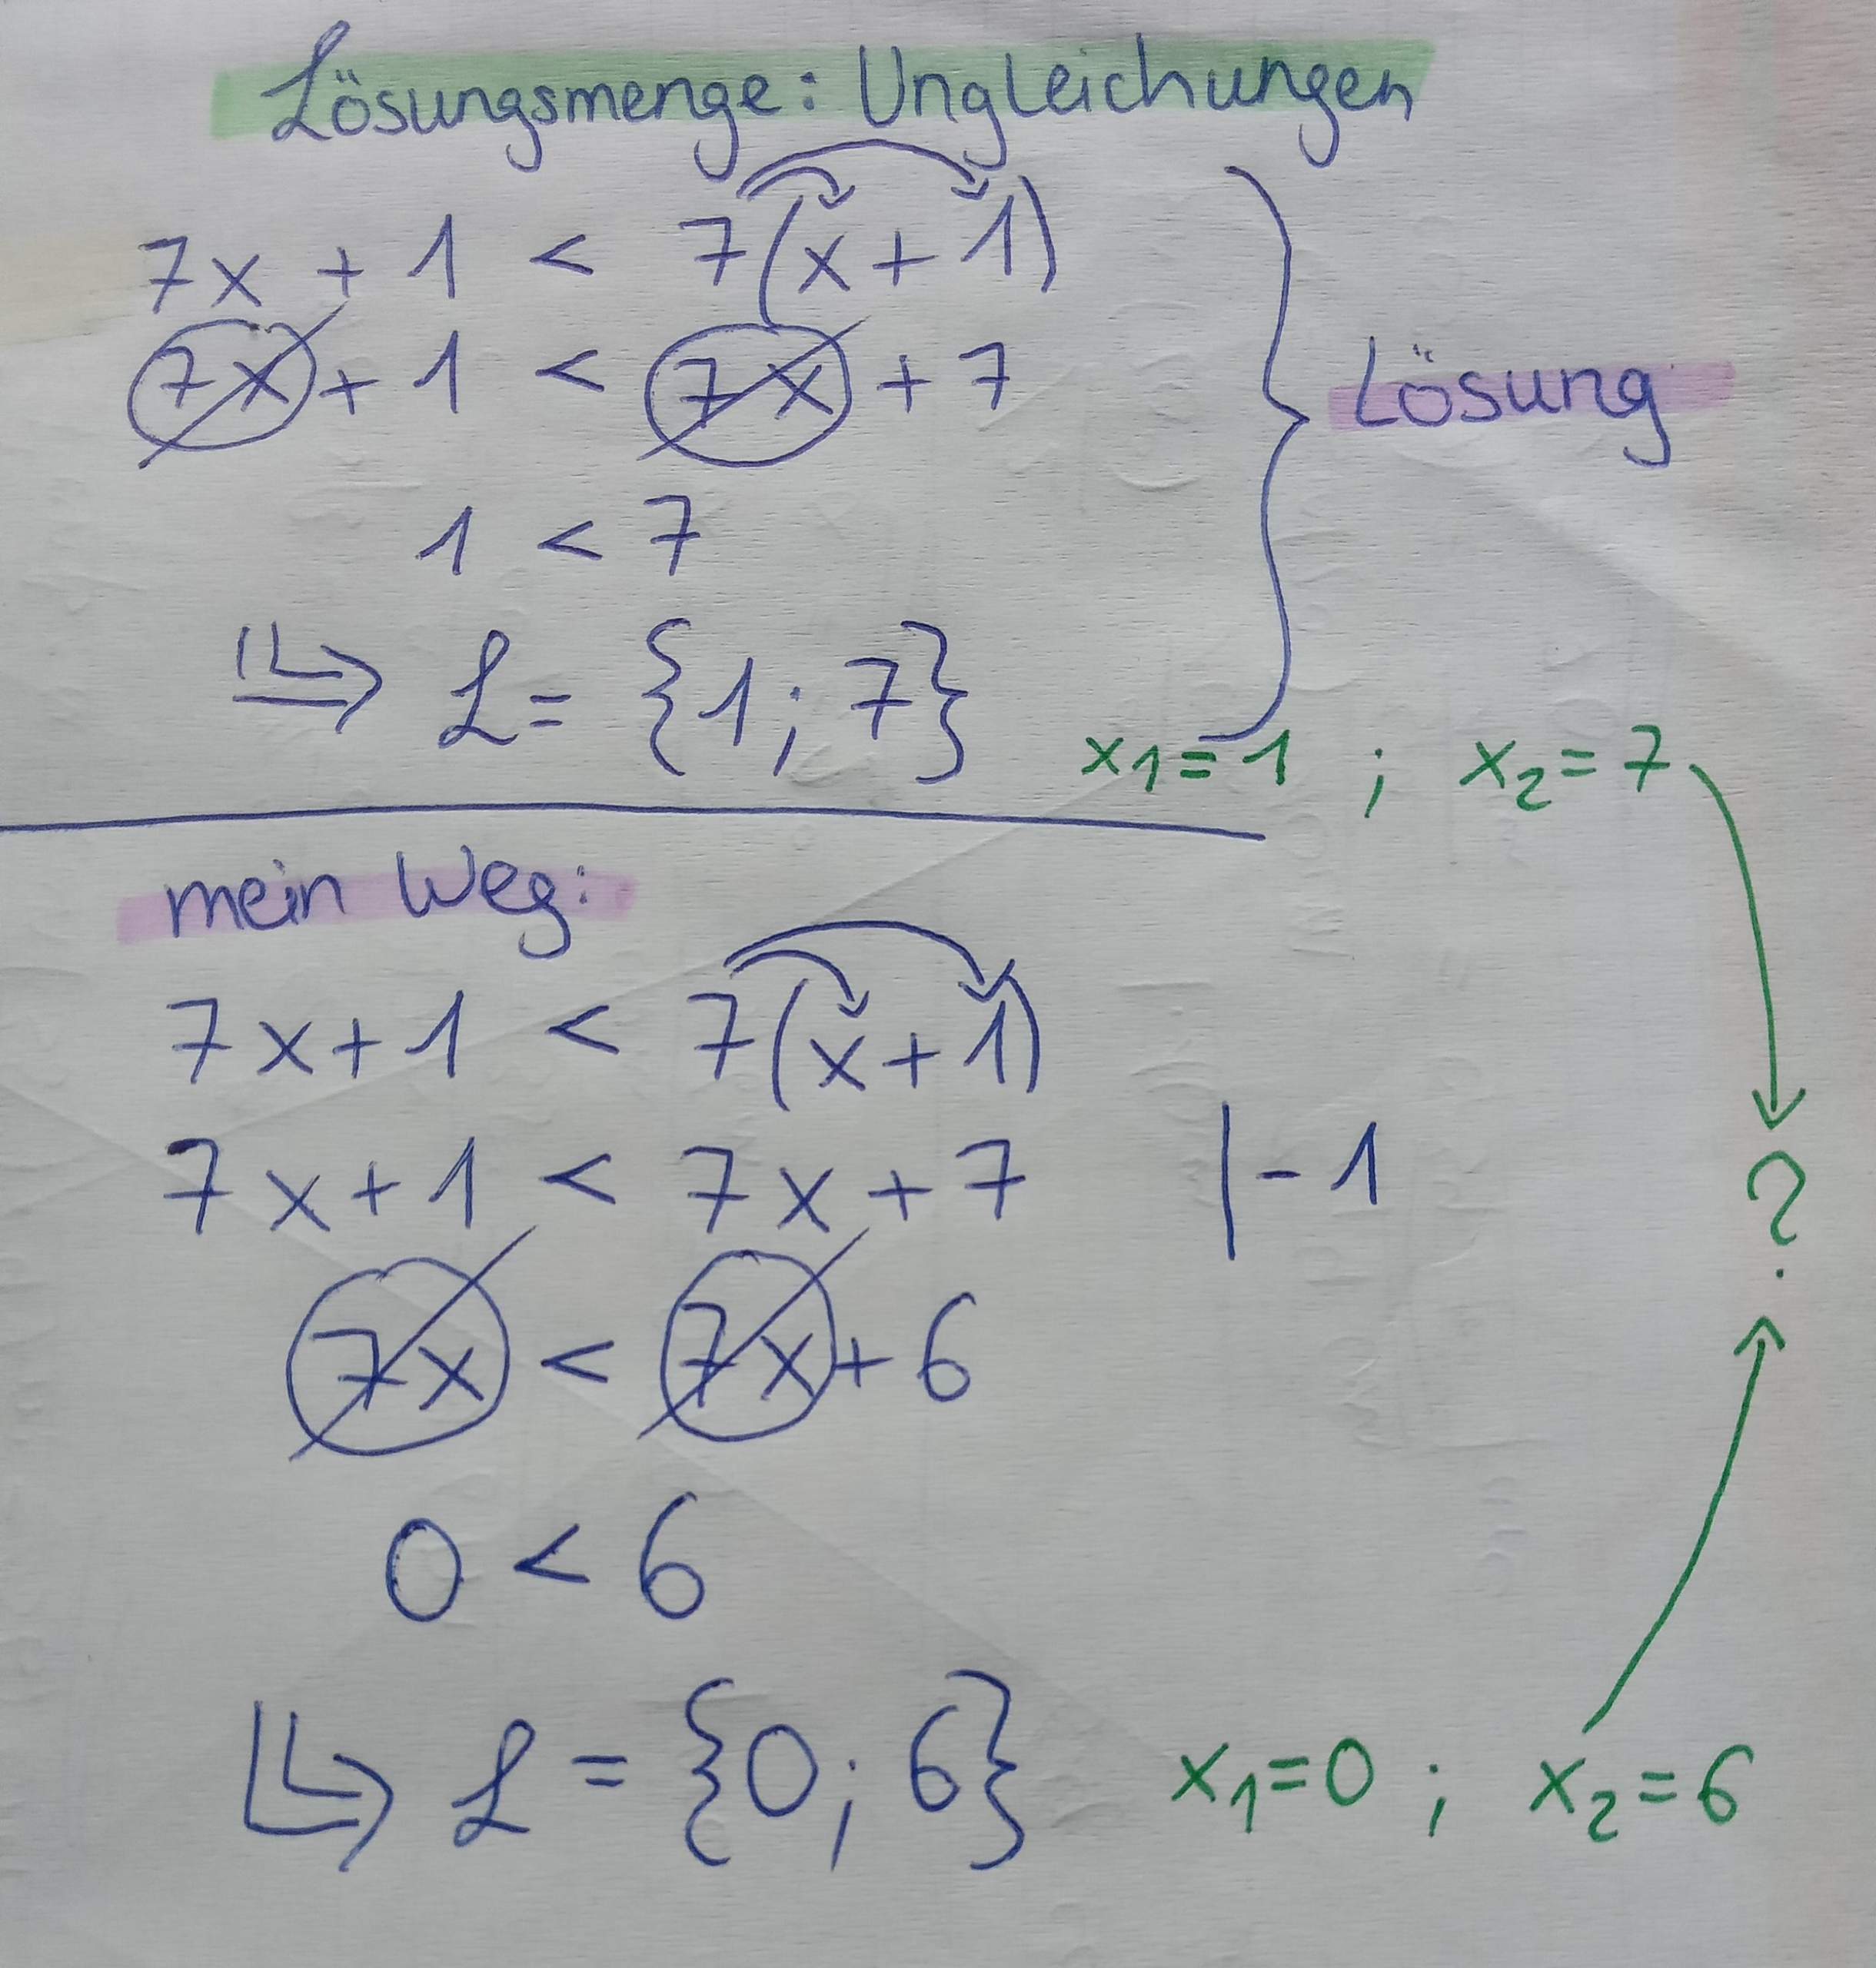 Lösungsmenge: Ungleichungen
7x + 1 < 7(x + 1)
7x + 1 < 7x + 7
Lösung
1 < 7
L = {1; 7}
x1 = 1 ; x2 = 7
mein Weg:
7x + 1 < 7(x + 1)
7x + 1 < 7x + 7 | - 1
?
7x < 7x + 6
0 < 6
L = {0; 6} x1 = 0 ; x2 = 6